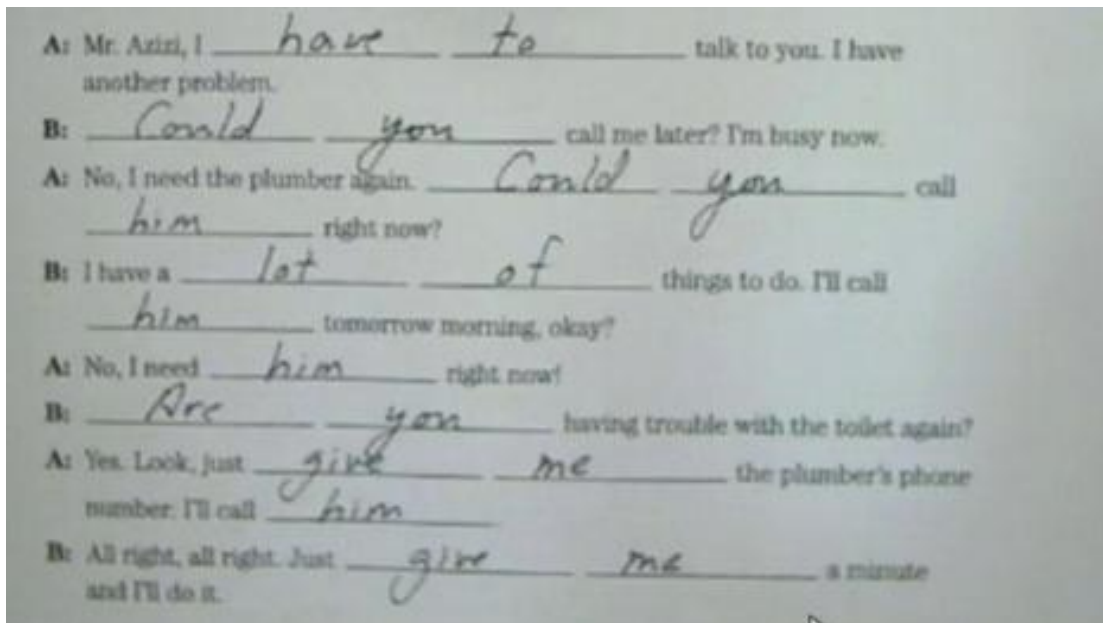 A: Mr. Azizi, I have to talk to you. I have
another problem.
B: Could you call me later? I'm busy now.
A: No, I need the plumber again. Could you call
him right now?
B: I have a lot of things to do. I'll call
him tomorrow morning, okay?
A: No, I need him right now!
B: Are you having trouble with the toilet again?
A: Yes. Look, just give me the plumber's phone
number. I'll call him
B: All right, all right. Just give me a minute
and I'll do it.